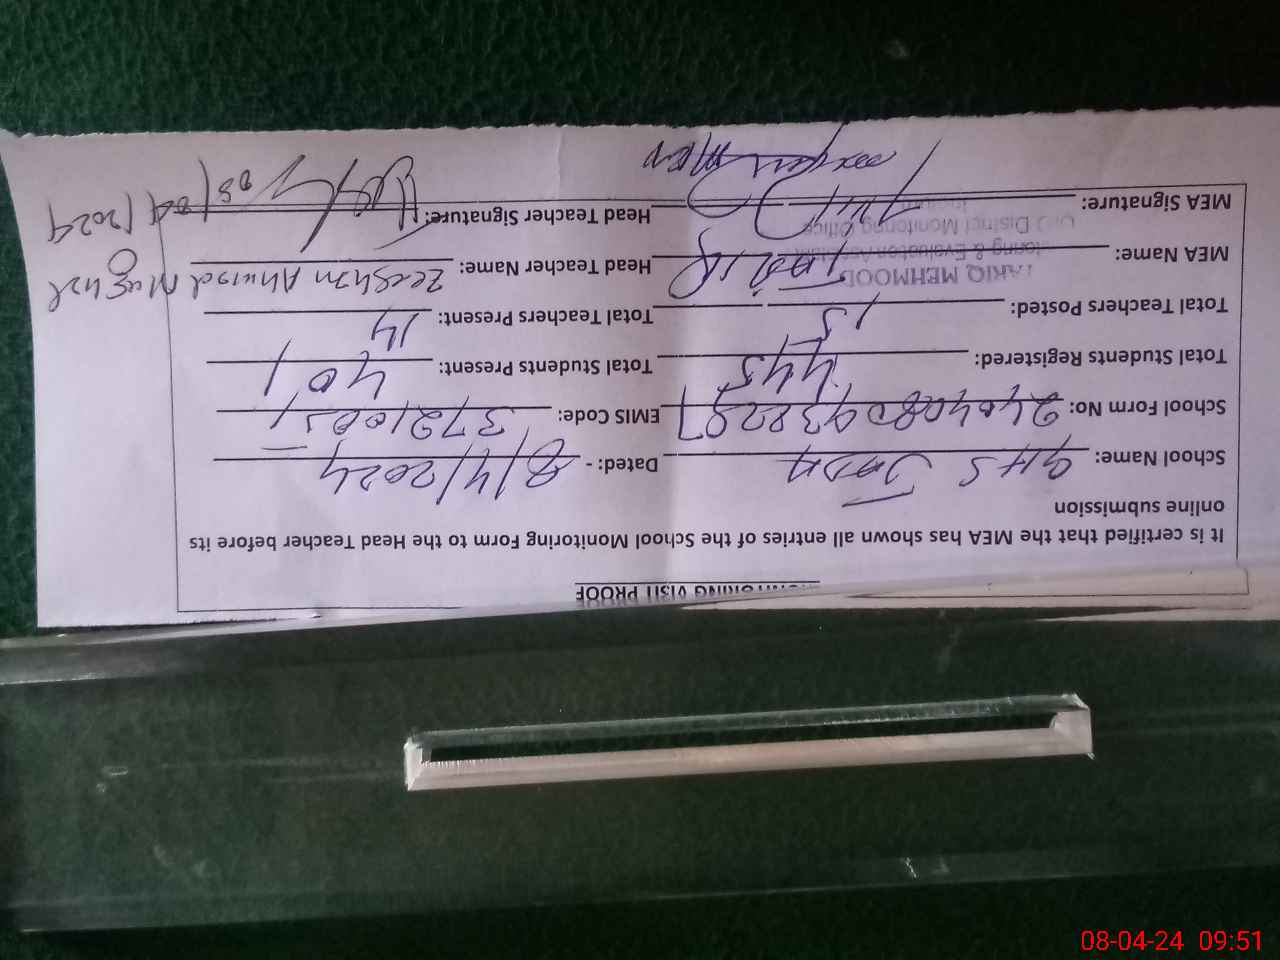 MONITORING VISIT PROOF
It is certified that the MEA has shown all entries of the School Monitoring Form to the Head Teacher before its
online submission
School Name: GHS Dated: - 8/4/2024
School Form No: EMIS Code:
Total Students Registered: 445 Total Students Present: 401
Total Teachers Posted: 15 Total Teachers Present: 14
TARIQ MEHMOOD
MEA Name: Tariq Head Teacher Name: Zeeshan Ahmed Mughal
District Monitoring Office
MEA Signature: Head Teacher Signature:
08/04/2024
08-04-24 09:51